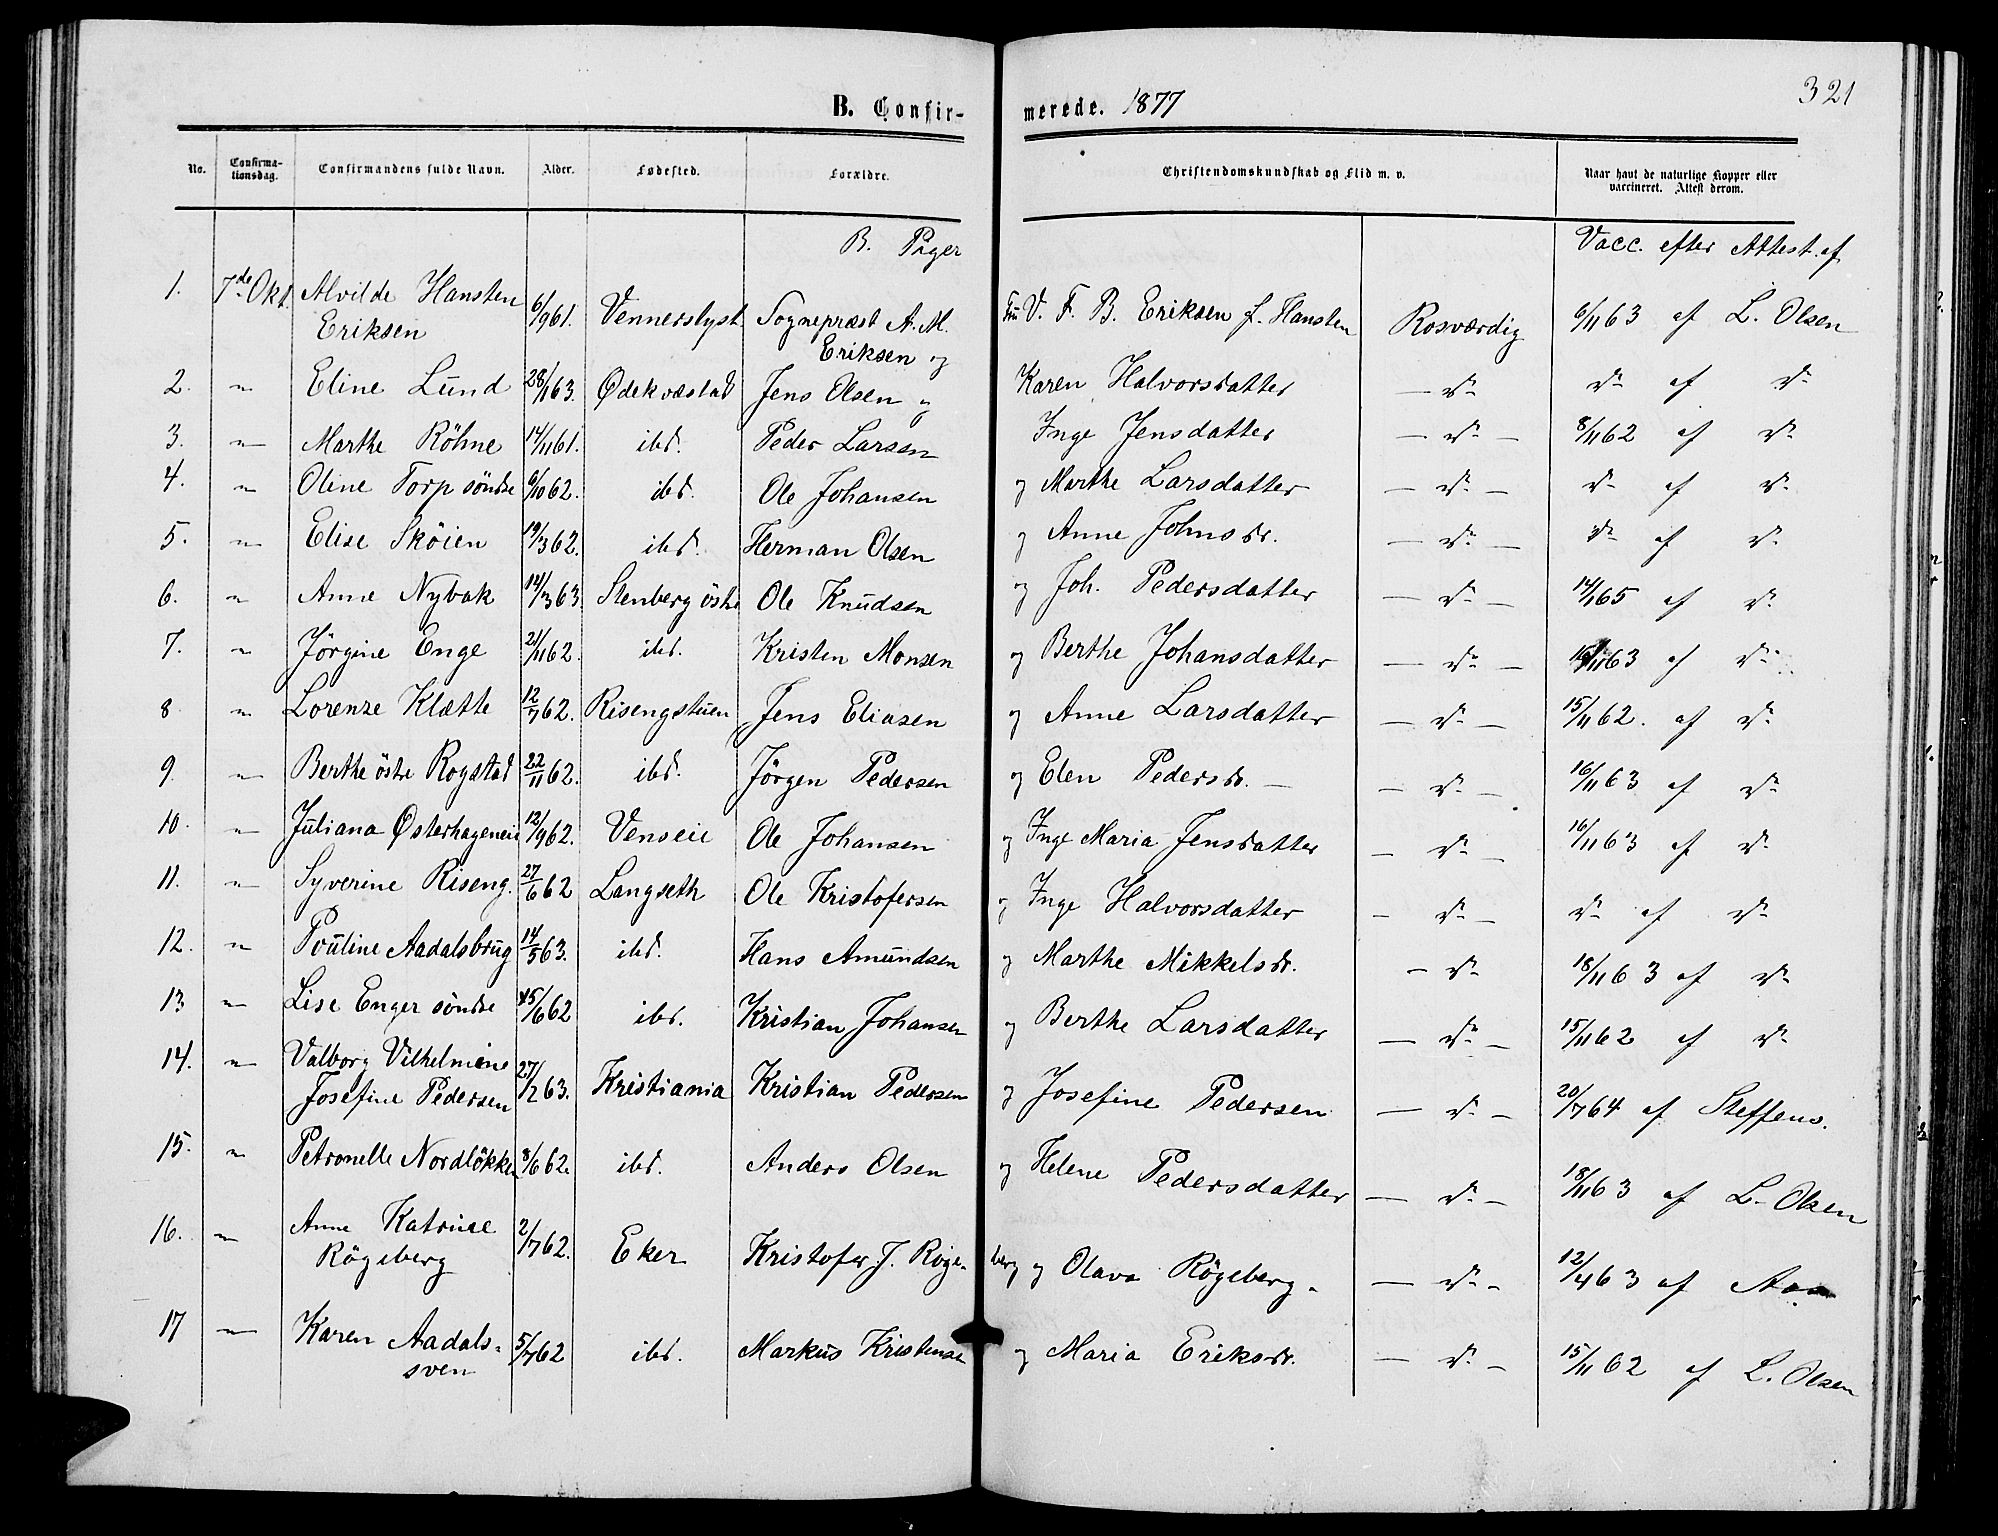 321
B. Confirmerede. 1877
No. Confirmationsdag. Confirmandens fulde Navn. Alder. Fødested. Forældre. Christendomskundskab og Flid m. v. Naar havt de naturlige Kopper eller vaccineret. Attest derom.
B. Piger Vacc. efter Attest. af
1. 7de Okt. Alvilde Hansten 6/9 61. Vennerslyst Sognepræst A. M. Fru V. F. B. Eriksen f. Hansten Rosværdig 6/11 63 af L. Olsen
Eriksen Eriksen og
2. " Eline Lund 28/1 63. Ødekvæstad Jens Olsen og Karen Halvorsdatter — d° d° af d°
3. " Marthe Röhne 14/11 61. ibd. Peder Larsen Inge Jensdatter — d° — 8/11 62 af d°
4. " Oline Torp söndre 6/10 62. ibd. Ole Johansen og Marthe Larsdatter — d° — d° af d°
5. " Elise Sköien 19/3 62. ibd. Herman Olsen og Anne Johnsdr. — d° — d° af d°
6. " Anne Nybak 14/3 63 Stenberg östre Ole Knudsen og Joh. Pedersdatter — d° — 14/1 65 af d°
7. " Jörgine Enge 21/11 62. ibd. Kristen Monsen og Berthe Johansdatter — d° — /11 63 af d°
8 " Lorenze Klætte 12/7 62. Risengstuen Jens Eliasen og Anne Larsdatter — d° — 15/11 62. af d°
9. " Berthe östre Rogstad 22/11 62. ibd. Jörgen Pedersen og Elen Pedersdr. — — d° — 16/11 63 af d°
10. " Juliana Østerhageneie 12/9 62. Venseie Ole Johansen og Inge Maria Jensdatter — d° — 16/11 63 af d°
11. " Syverine Riseng. 27/6 62 Langseth Ole Kristofersen og Inge Halvorsdatter — d° — d° af d°
12. " Pouline Aadalsbrug 14/5 63. ibd. Hans Amundsen og Marthe Mikkelsdr. — d° 18/11 63 af d°
13 " Lise Enger söndre 15/6 62 ibd. Kristian Johansen og Berthe Larsdatter — d° — 15/11 62 af d°
14. " Valborg Vilhelmine
Josefine Pedersen 27/2 63. Kristiania Kristian Pedersen og Josefine Pedersen — d° — 20/7 64 af Steffens.
15. " Petronelle Nordlökken 8/6 62. ibd. Anders Olsen og Helene Pedersdatter — d° — 18/11 63 af L. Olsen
16. " Anne Katrine
Rögeberg 2/7 62. Eker Kristofer J. Rögeberg og Olava Rögeberg. — d° — 12/4 63 af
17 " Karen Aadals-
sven 5/7 62 ibd. Markus Kristensen og Maria Eriksdr. — d° — 15/11 62 af L. Olsen